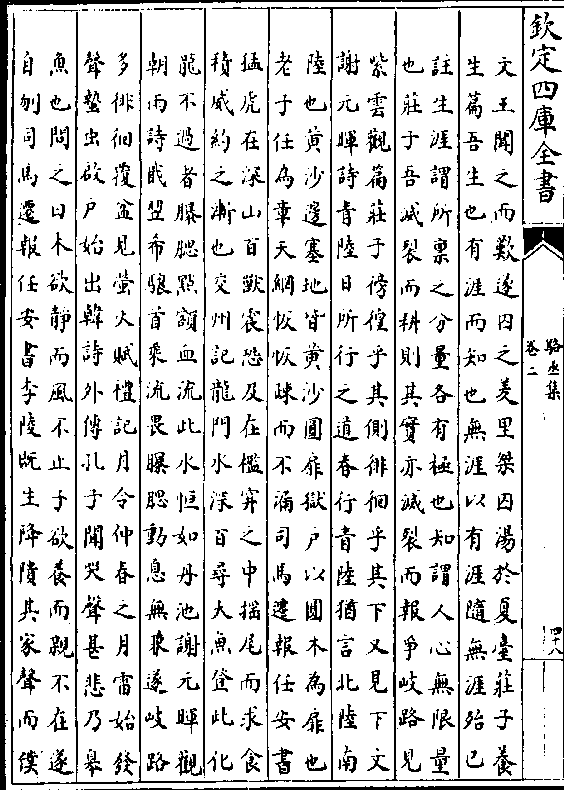 欽定四庫全書
駱丞集
卷二
四十八
文王聞之而歎遂囚之羑里桀囚湯於夏臺莊子養
生篇吾生也有涯而知也無涯以有涯隨無涯殆已
註生涯謂所禀之分量各有極也知謂人心無限量
也莊子吾滅裂而耕則其實亦滅裂而報爭岐路見
紫雲觀篇莊子傍徨乎其側徘徊乎其下又見下文
謝元暉詩青陸日所行之道春行青陸猶言北陸南
陸也黄沙邊塞地皆黄沙圓扉獄户以圓木為扉也
老子任為章天網恢恢疎而不漏司馬遷報任安書
猛虎在深山百獸震恐及在檻穽之中揺尾而求食
積威約之漸也交州記龍門水深百尋大魚登此化
龍不過者曝腮點額血流此水恒如丹池謝元暉觀
朝雨詩戢翌希驤首乘流畏曝腮動息無兼遂岐路
多徘徊覆盆見螢火賦禮記月令仲春之月雷始發
聲蟄出啟户始出韓詩外傳孔子聞哭聲甚悲乃皋
魚也問之曰木欲静而風不止子欲養而親不在遂
自刎司馬遷報任安書李陵既生降隤其家聲而僕